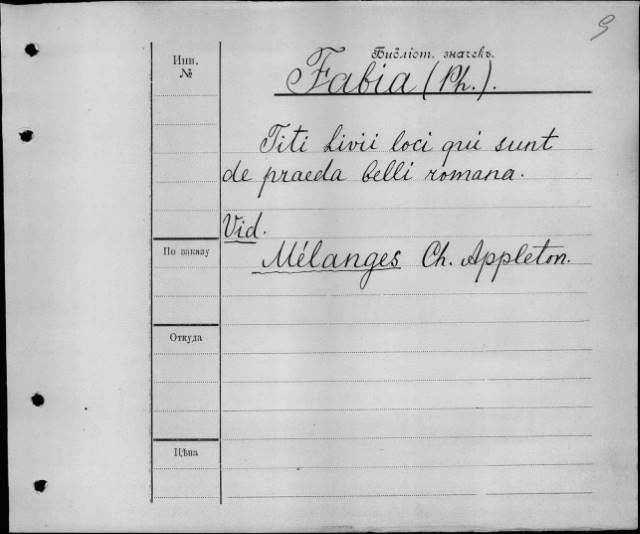 Библіот. значекъ.
Инв.
№
Fabia (Ph.).
Titi Livii loci qui sunt
de praeda belli romana.
Vid.
Mélanges Ch. Appleton.
По заказу
Откуда
Цѣна